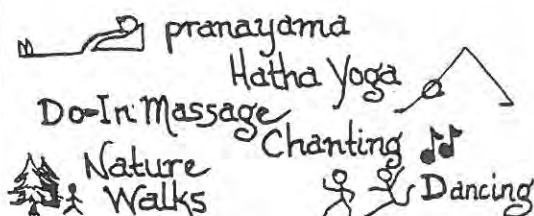 pranayama
Hatha Yoga
Do-In Massage
Chanting
Nature
Walks
Dancing